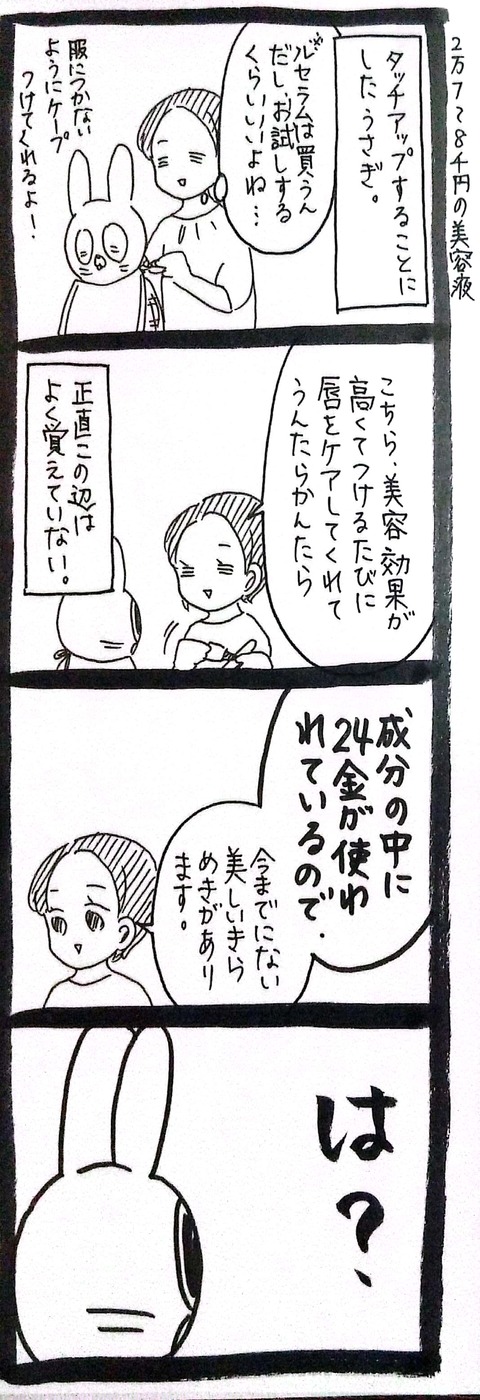 2万7千8千円の美容液
タッチアップすることに
したうさぎ。
ルセラムは買うん
だし、お試しする
くらいいいよね…
服につかない
ようにケープ
つけてくれるよ！
こちら、美容効果が
高くてつけるたびに
唇をケアしてくれて
うんたらかんたら
正直この辺は
よく覚えていない。
成分の中に
24金が使わ
れているので、
今までにない
美しいきら
めきがあり
ます。
は？